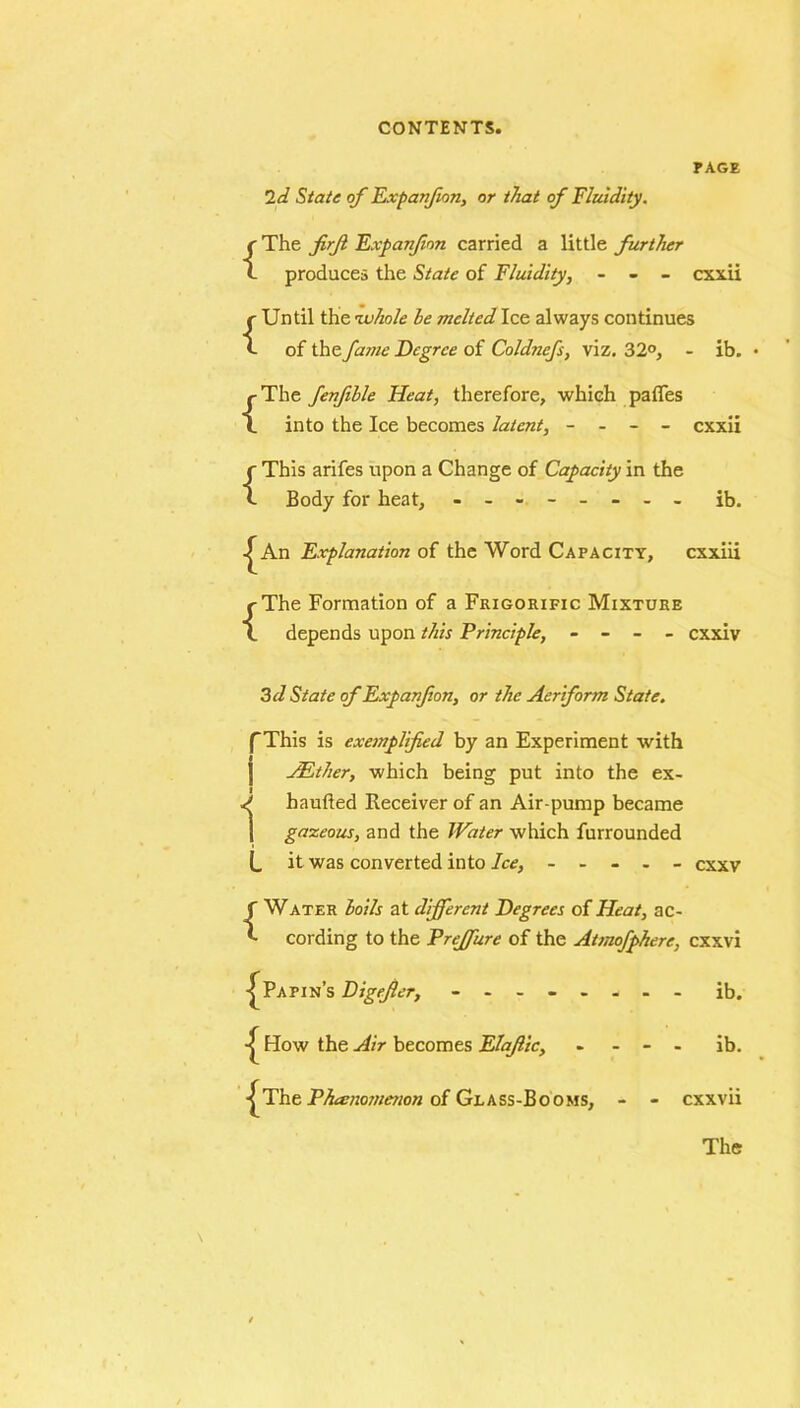 CONTENTS.
PAGE
2d State of Expanſion, or that of Fluidity.
The firſt Expanſion carried a little further
produces the State of Fluidity, - - - cxxii
Until the whole be melted Ice always continues
of the ſame Degree of Coldneſs, viz. 32º, - ib.
The ſenſible Heat, therefore, which paſſes
into the Ice becomes latent, - - - - cxxii
This ariſes upon a Change of Capacity in the
Body for heat, - - - - - - - - ib.
An Explanation of the Word CAPACITY, cxxiii
The Formation of a FRIGORIFIC MIXTURE
depends upon this Principle, - - - - cxxiv
3d State of Expanſion, or the Aeriform State.
This is exemplified by an Experiment with
Æther, which being put into the ex-
hauſted Receiver of an Air-pump became
gazeous, and the Water which ſurrounded
it was converted into Ice, - - - - - cxxv
WATER boils at different Degrees of Heat, ac-
cording to the Preſſure of the Atmoſphere, cxxvi
PAPIN'S Digeſter, - - - - - - - - ib.
How the Air becomes Elaſtic, - - - - ib.
The Phænomenon of GLASS-BOOMS, - - cxxvii
The